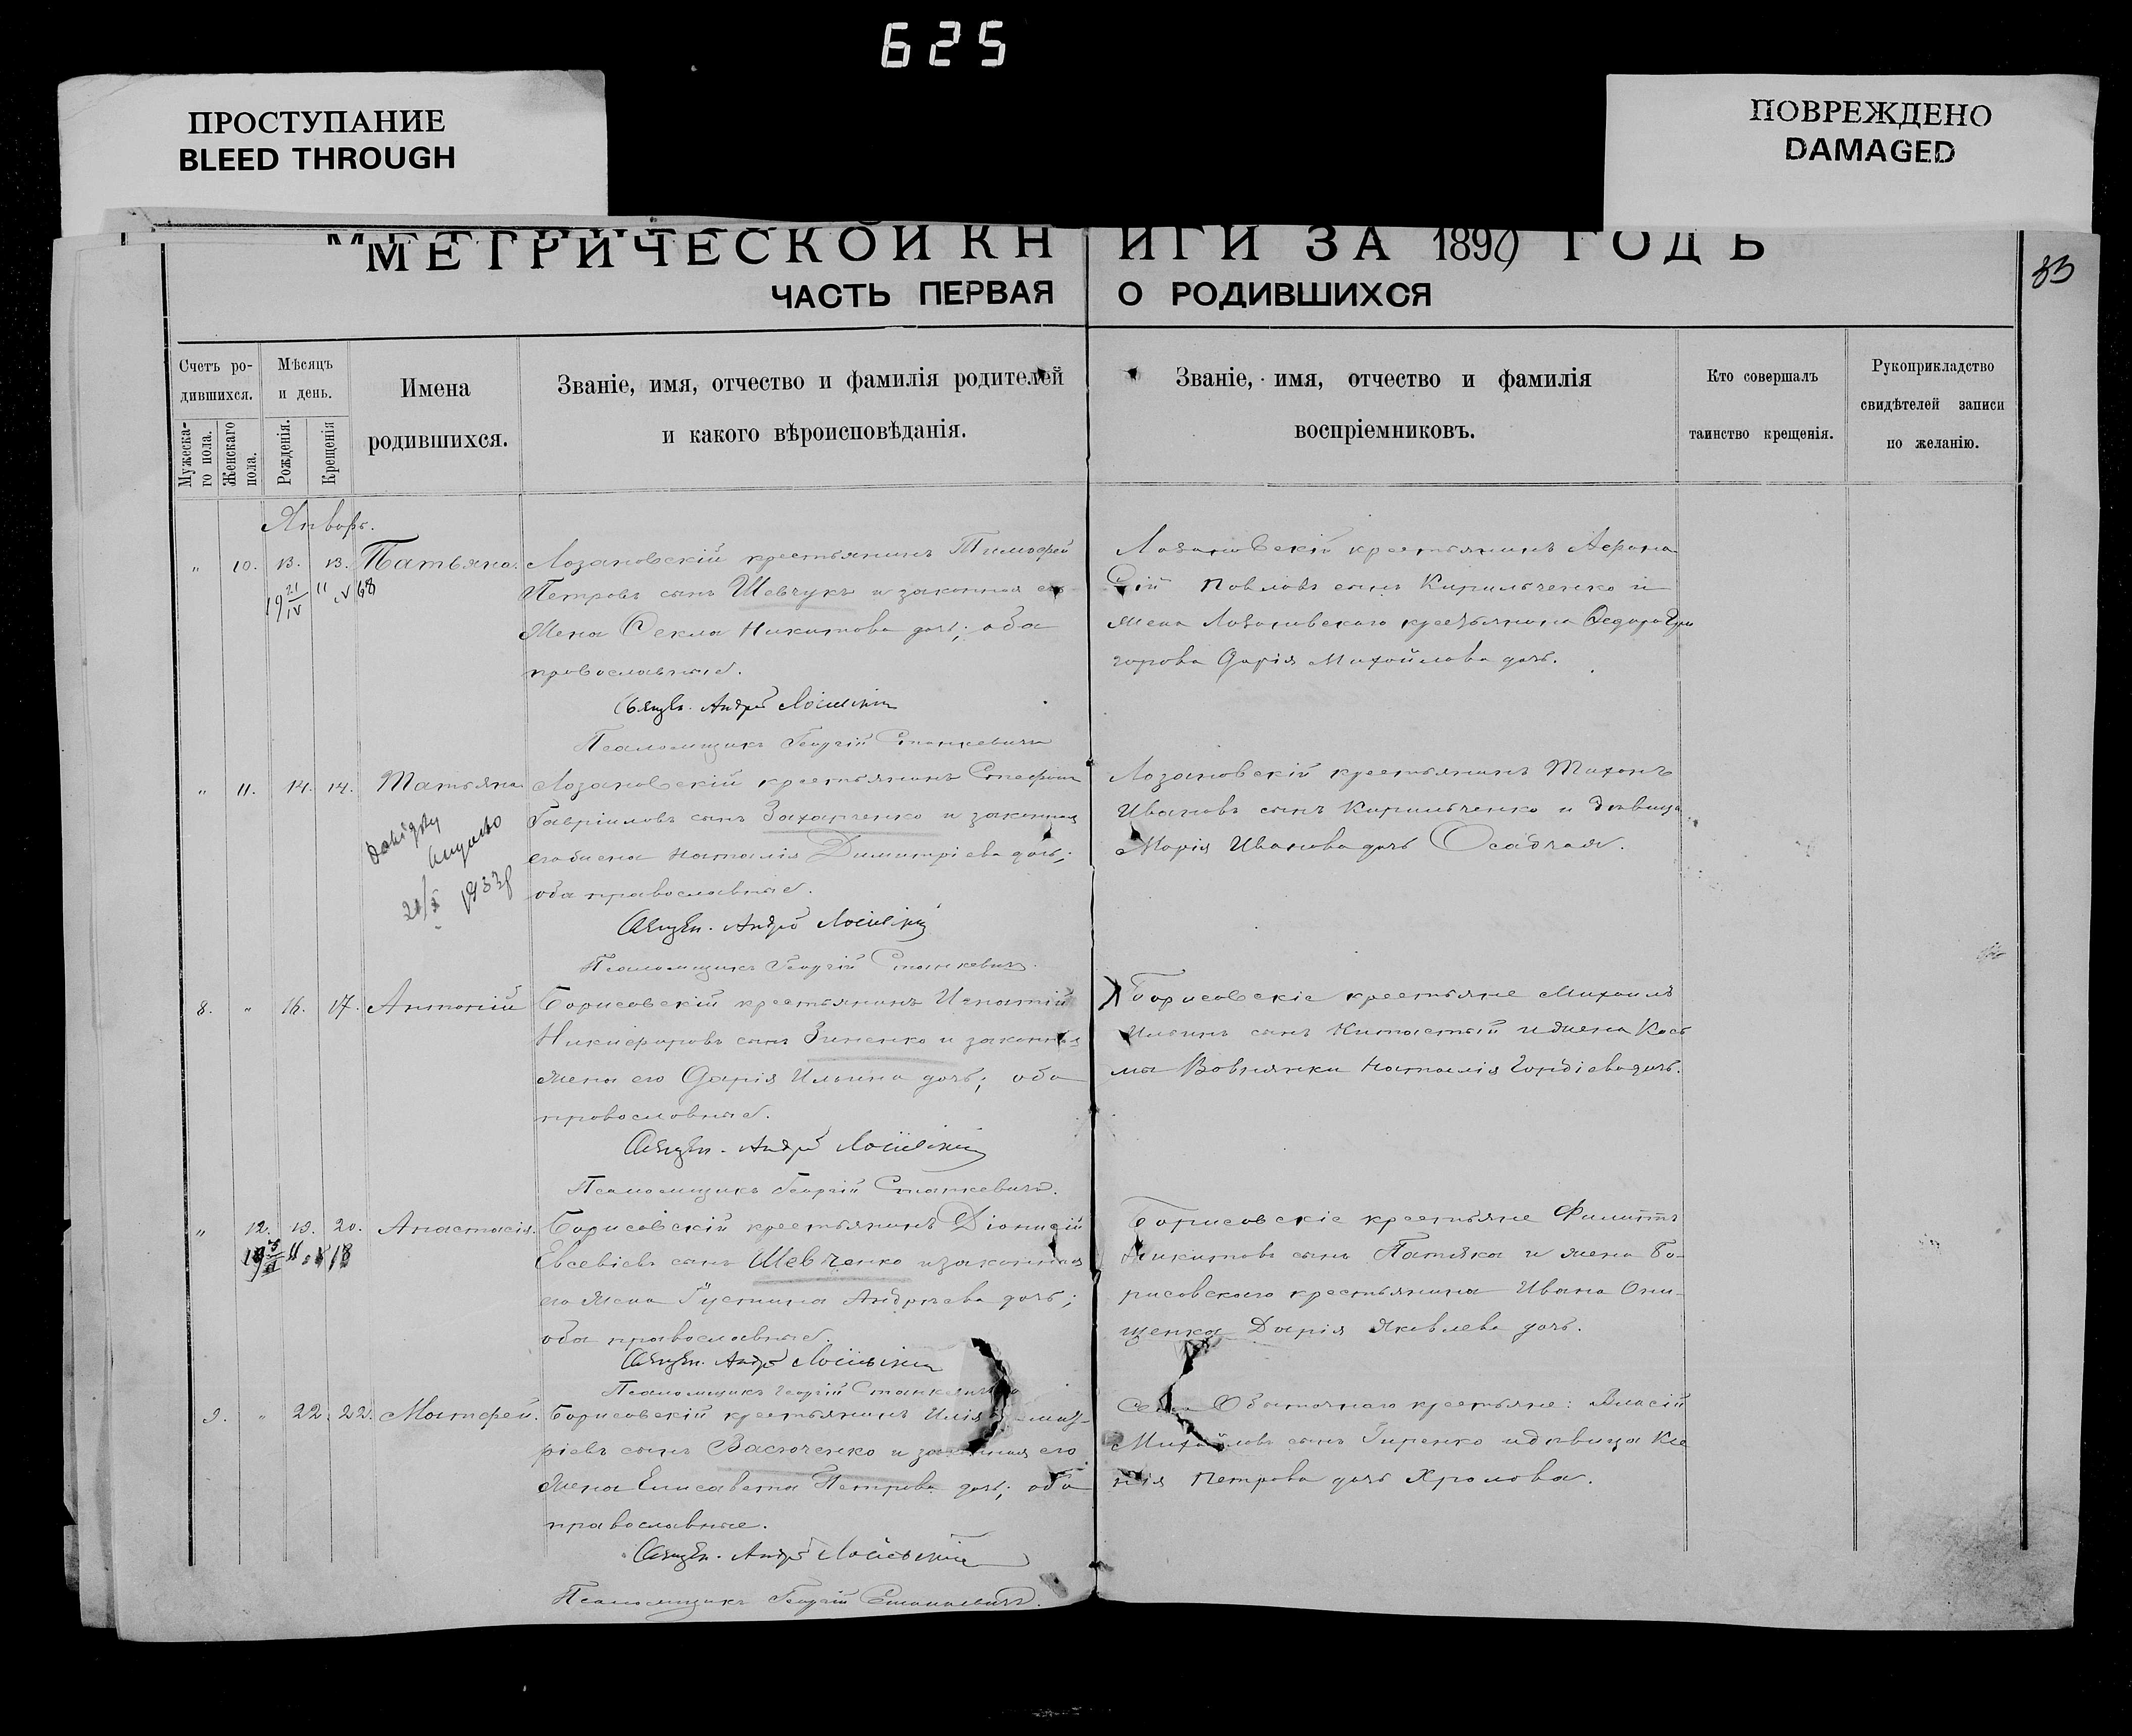 625
ПРОСТУПАНИЕ
BLEED THROUGH
ПОВРЕЖДЕНО
DAMAGED
МЕТРИЧЕСКОЙ КНИГИ ЗА 1890 ГОДЪ
33
ЧАСТЬ ПЕРВАЯ О РОДИВШИХСЯ
Счетъ ро-
дившихся.
Мужеска-
го пола.
Женскаго
пола.
Мѣсяцъ
и день.
Рожденія.
Крещенія
Имена
родившихся.
Званіе, имя, отчество и фамилія родителей
и какого вѣроисповѣданія.
Званіе, имя, отчество и фамилія
воспріемниковъ.
Кто совершалъ
таинство крещенія.
Рукоприкладство
свидѣтелей записи
по желанію.
Январь.
" 10. 13. 13. Татьяна.
Лозановскій крестьянинъ Тимофей
Петровъ сынъ Шевчукъ и законная его
жена Фекла Никитова дочь; оба
православные.
Священ. Андрей
Псаломщикъ Георгій Станкевичъ
Лозановскій крестьянинъ Афана
сій Павловъ сынъ Кирильченко и
жена Лозановскаго крестьянина Федора Гри
горова Дарія Михайлова дочь.
" 11. 14. 14. Татьяна
21/X 1933
Лозановскій крестьянинъ Стефанъ
Гавріиловъ сынъ Захарченко и законная
его жена Наталія Димитріева дочь;
оба православные.
Священ. Андрей
Псаломщикъ Георгій Станкевичъ.
Лозановскій крестьянинъ Тихонъ
Ивановъ сынъ Кирильченко и дѣвица
Марія Иванова дочь Осадчая.
8. " 16. 17. Антоній
Борисовскій крестьянинъ Игнатій
Никифоровъ сынъ Зиненко и законная
жена его Дарія Ильина дочь; оба
православные.
Священ. Андрей
Псаломщикъ Георгій Станкевичъ.
Борисовскіе крестьяне Михаилъ
Ильинъ сынъ и жена Кось
мы Вовнянки Наталія Гордіева дочь.
" 12. 19. 20. Анастасія.
Борисовскій крестьянинъ Діонисій
Евсевіевъ сынъ Шевченко и законная
его жена Іустина Андреева дочь;
оба православные.
Священ. Андрей
Псаломщикъ Георгій Станкевичъ
Борисовскіе крестьяне Филиппъ
Никитовъ сынъ Патяка и жена Бо-
рисовскаго крестьянина Ивана Они-
щенка Дарія Яковлева дочь.
9. " 22. 22. Матфей.
Борисовскій крестьянинъ Илія
ріевъ сынъ Васюченко и законная его
жена Елисавета Петрова дочь; оба
православные.
Священ. Андрей
Псаломщикъ Георгій Станкевичъ.
крестьяне: Власій
Михайловъ сынъ Гиренко и дѣвица Ксе
нія Петрова дочь Хромова.